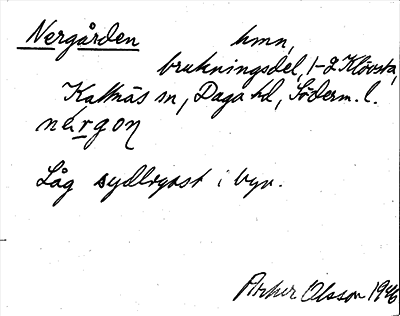 Nergården hmn,
brukningsdel, 1-2 Klövsta,
Kattnäs sn, Daga hd, Söderm. l.
närgon
Låg sydligast i byn.
Olsson 1946